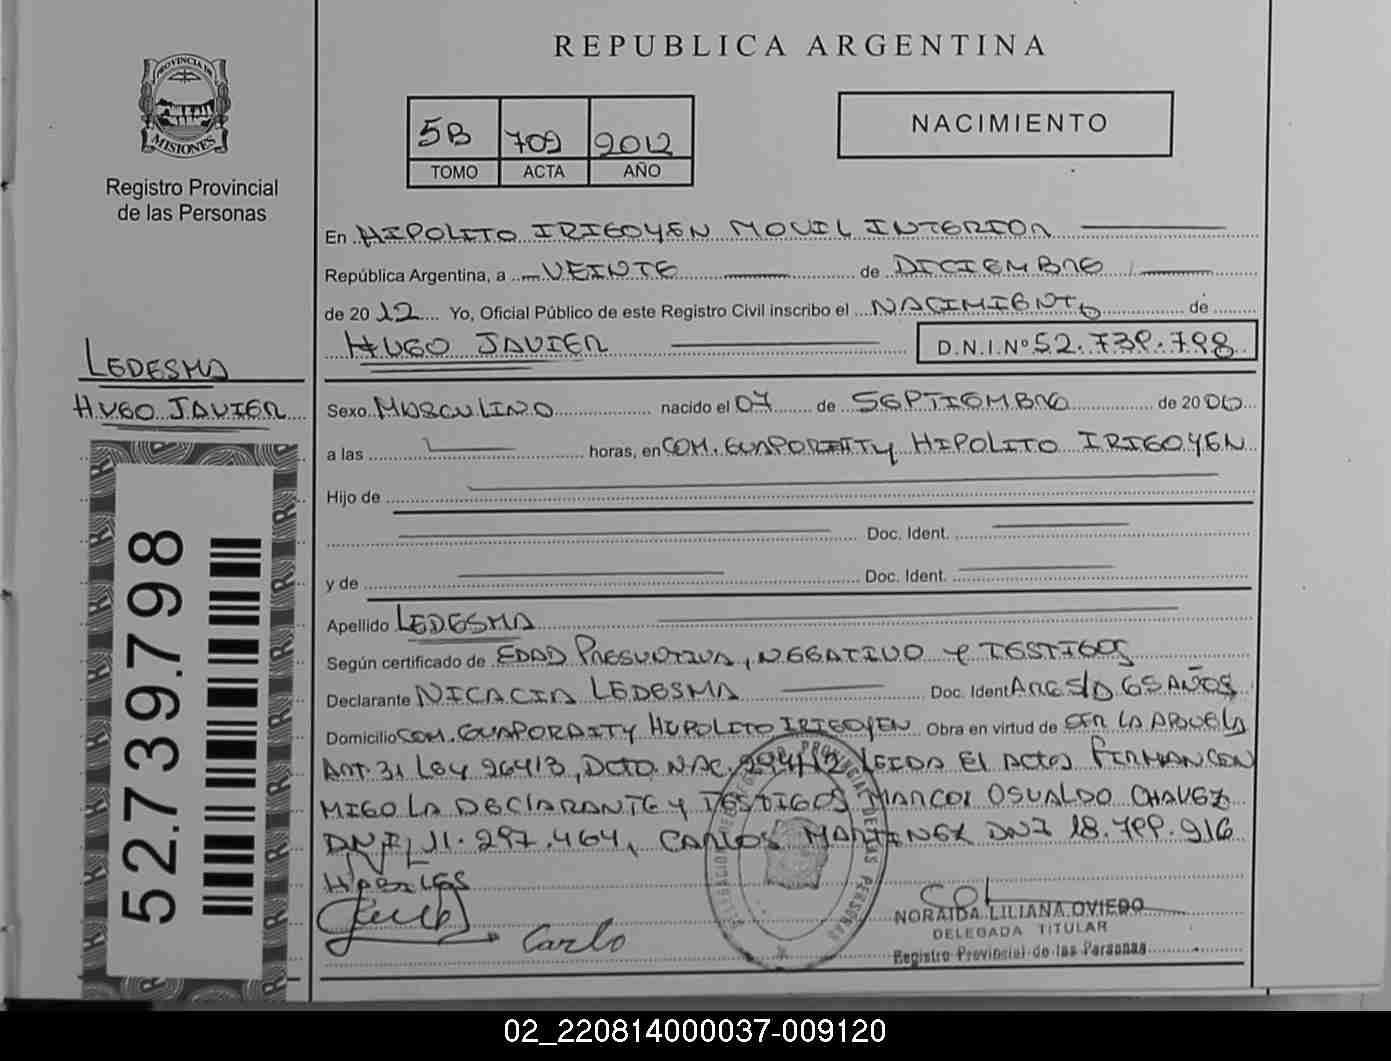 REPUBLICA ARGENTINA
PROVINCIA DE
MISIONES
Registro Provincial
de las Personas
5B 709 2012
TOMO ACTA AÑO
NACIMIENTO
En HIPOLITO IRIGOYEN MOVIL INTERIOR
República Argentina, a VEINTE de DICIEMBRE
de 2012 Yo, Oficial Público de este Registro Civil inscribo el NACIMIENTO de
HUGO JAVIER D.N.I.Nº 52.739.798
LEDESMA
HUGO JAVIER
52.739.798
Sexo MASCULINO nacido el 07 de SEPTIEMBRE de 2006
a las horas, en COM. GUAPORAITY HIPOLITO IRIGOYEN
Hijo de
Doc. Ident.
y de Doc. Ident.
Apellido LEDESMA
Según certificado de EDAD PRESUNTIVA, NEGATIVO Y TESTIGOS
Declarante NICACIA LEDESMA Doc. Ident 65 AÑOS
Domicilio COM. GUAPORAITY HIPOLITO IRIGOYEN Obra en virtud de SER LA ABUELA
ART. 31 LEY 26413, DCTO. NAC. 294/12 LEIDA EL ACTA FIRMAN CON
MIGO LA DECLARANTE Y TESTIGOS MARCOS OSVALDO CHAVEZ
DNI 11.297.464, CARLOS MARTINEZ DNI 18.799.916
HABILES
Carlo
NORAIDA LILIANA OVIEDO
DELEGADA TITULAR
Registro Provincial de las Personas
02_220814000037-009120